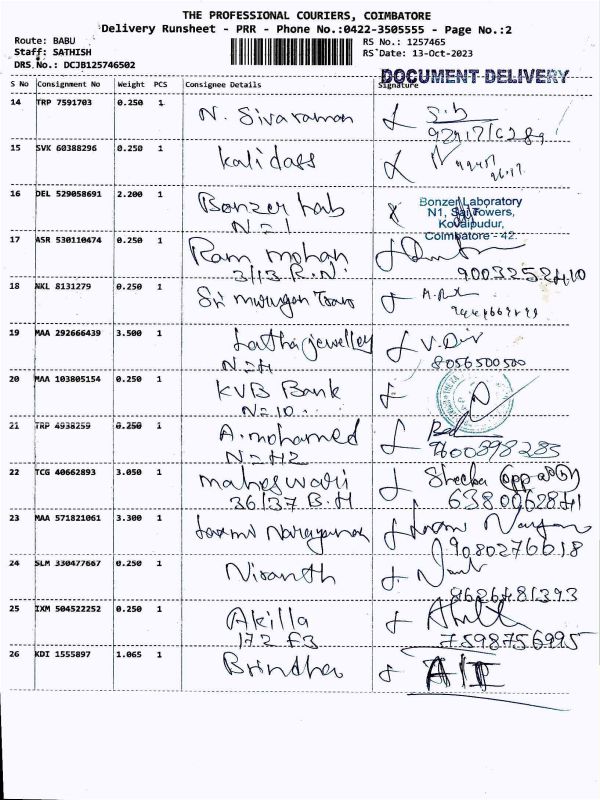 THE PROFESSIONAL COURIERS, COIMBATORE
Delivery Runsheet - PRR - Phone No.:0422-3505555 - Page No.:2
Route: BABU
Staff: SATHISH
DRS No.: DCJB125746502
RS No.: 1257465
RS Date: 13-Oct-2023
DOCUMENT DELIVERY
S No Consignment No Weight PCS Consignee Details Signature
14 TRP 7591703 0.250 1 N. Sivaraman
15 SVK 60388296 0.250 1 Kalidass
16 DEL 529058691 2.200 1 Bonzer Lab
N=1
Bonzer Laboratory
N1, Sai Towers,
Kovaipudur,
Coimbatore - 42.
17 ASR 530110474 0.250 1 Ram mohan
3/13 R.N.
9003258410
18 NKL 8131279 0.250 1 Sri murugan
19 MAA 292666439 3.500 1 Latha jewelley V. Div
N=4 8056500500
20 MAA 103805154 0.250 1 KVB Bank
N=10
21 TRP 4938259 0.250 1 A. mohamed
N=42 9600898283
22 TCG 40662893 3.050 1 maheswari
36/37 B.H
23 MAA 571821061 3.300 1 Laxmi Narayanan Laxmi
9080276618
24 SLM 330477667 0.250 1 Nisanth
8626481393
25 IXM 504522252 0.250 1 Akilla
172 F3 7598756995
26 KDI 1555897 1.065 1 Brindha